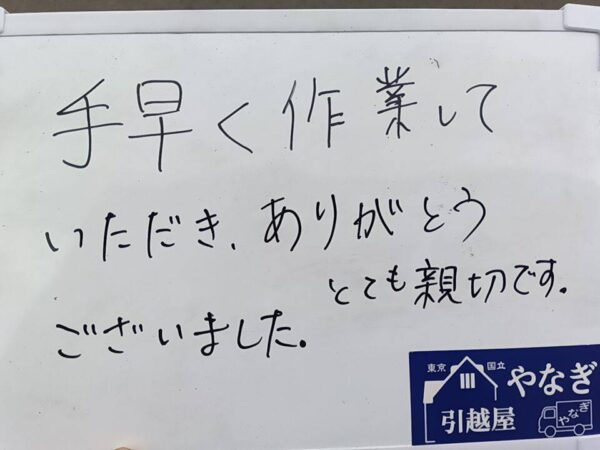 手早く作業して
いただき、ありがとう
ございました。
とても親切です。
東京 国立 やなぎ
引越屋 やなぎ